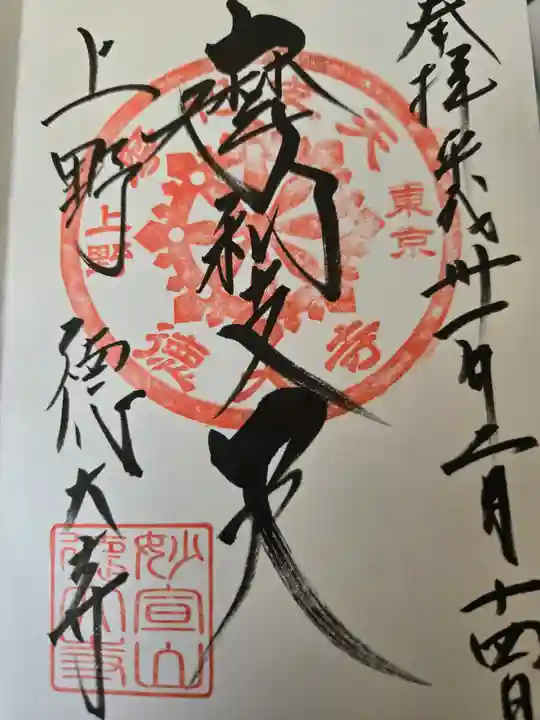 奉拝 平成卅一年二月十四日
摩利支天
上野 徳大寺
東京
上野
徳大寺
妙宣山
徳大寺